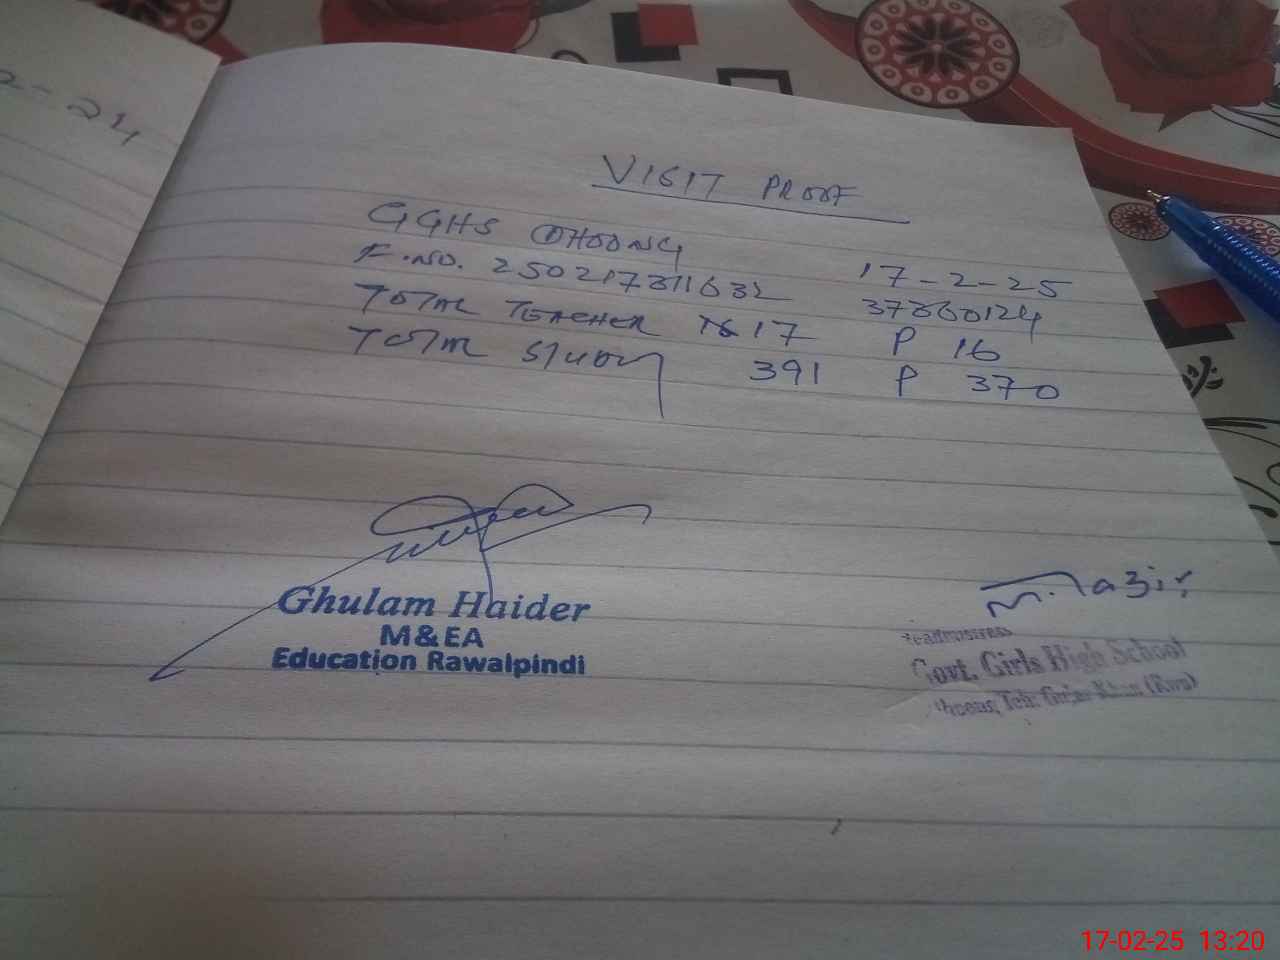 2-24
VISIT PROOF
GGHS DHOONG 17-2-25
F.NO. 250217311632 37360124
TOTAL TEACHER 17 P 16
TOTAL STUDENT 391 P 370
Ghulam Haider
M&EA
Education Rawalpindi
Nazir
Headmistress
Govt. Girls High School
Dhoong Teh: Gujar Khan (Rwp)
17-02-25 13:20